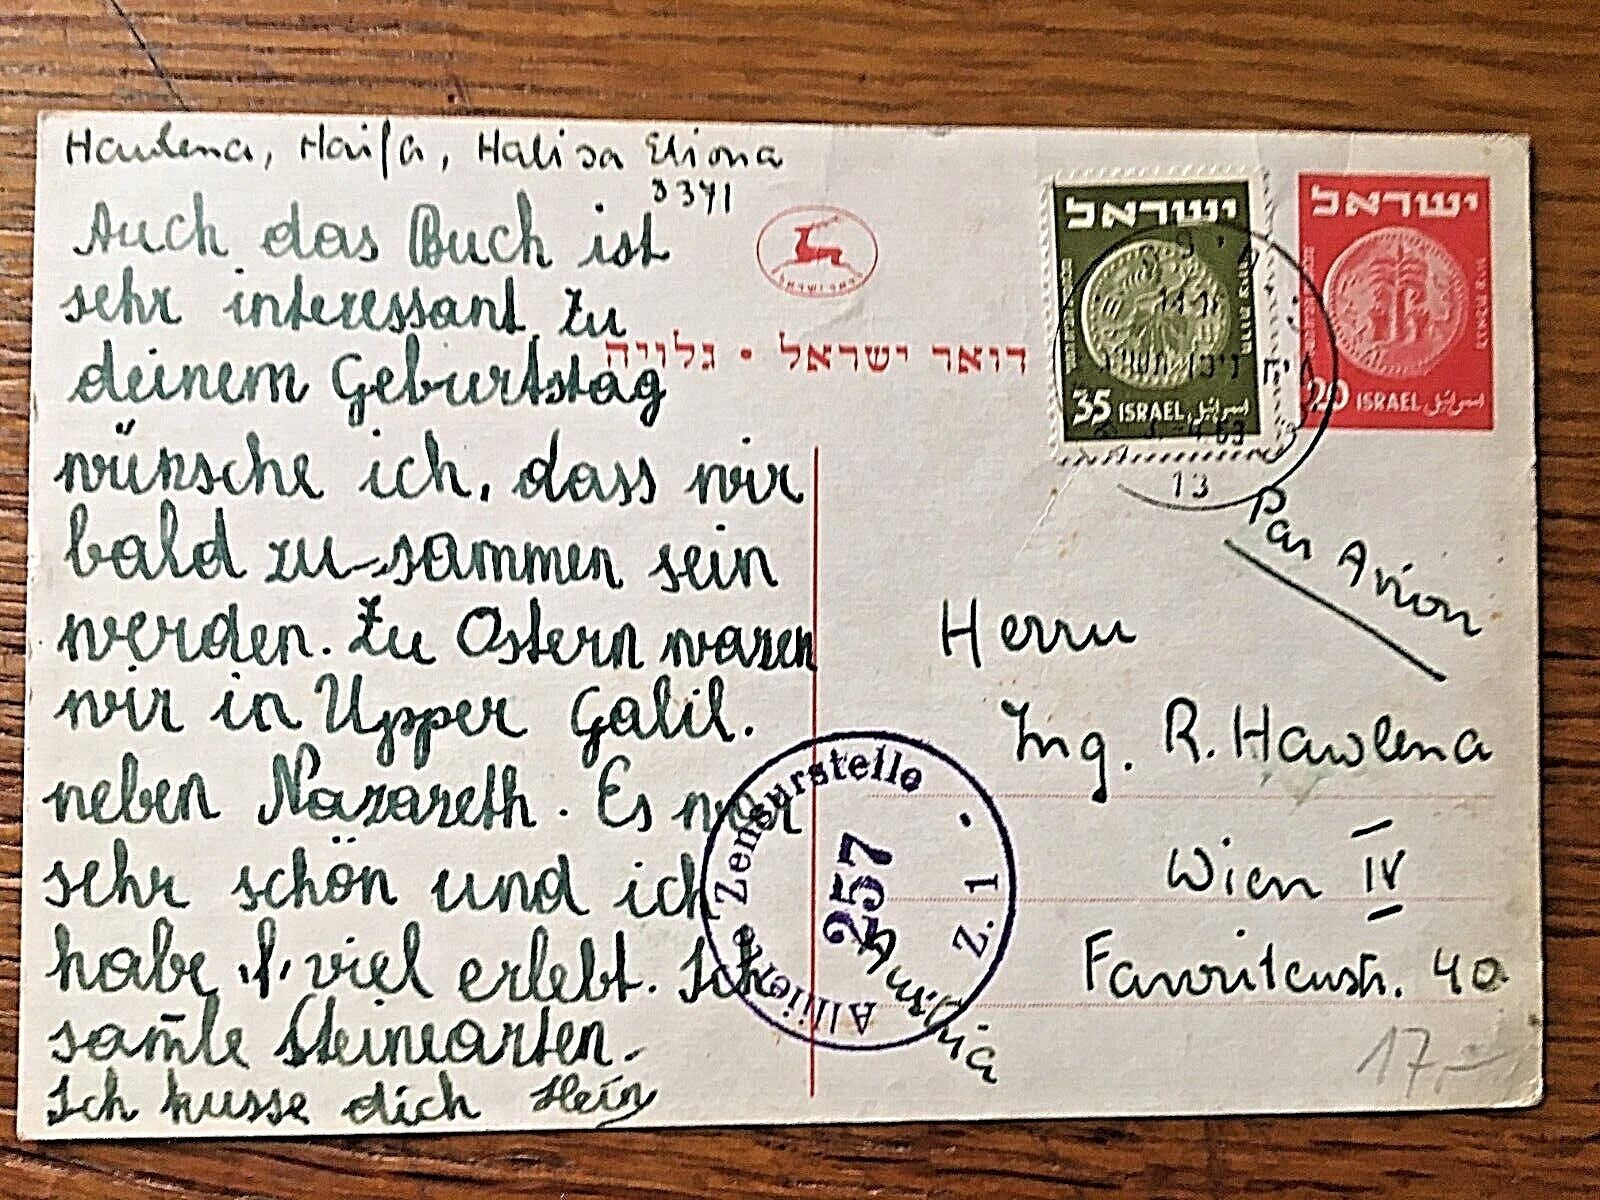 Hawlena, Haifa, Halisa Eliona
3371
Auch das Buch ist
sehr interessant. Zu
deinem Geburtstag
wünsche ich, dass wir
bald zu-sammen sein
werden. Zu Ostern waren
wir in Upper Galil.
neben Nazareth. Es war
sehr schön und ich
habe viel erlebt. Ich
sam̄le Steinearten.
Ich kusse dich Heinz
דואר ישראל
דואר ישראל • גלויה
ישראל
35 ISRAEL اسرائيل
ישראל
20 ISRAEL اسرائيل
13
Par Avion
Herrn
Ing. R. Hawlena
Wien IV
Favoritenstr. 40
Austria
Alliierte Zensurstelle
257
Z. 1
17,-